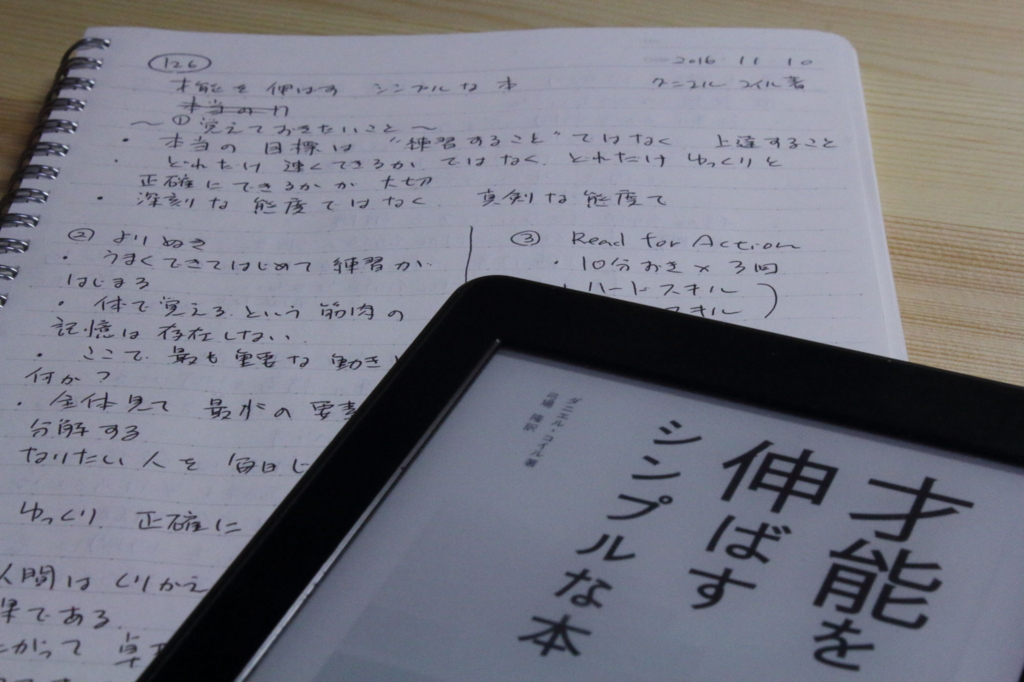 126
2016 11 10
才能を伸ばす シンプルな本 ダニエル コイル著
本当の力
~①覚えておきたいこと~
・本当の目標は"練習すること"ではなく 上達すること
・どれだけ速くできるか ではなく、どれだけ ゆっくりと
正確にできるかが大切
・深刻な態度ではなく 真剣な態度で
② よりぬき
・うまくできてはじめて練習が
はじまる
・体で覚える、という筋肉の
記憶は存在しない
・ここで、最も重要な動き
何か?
・全体見て 最小の要素
分解する
なりたい人を毎日じ
ゆっくり、正確に
人間は くりかえ
果である
③ Read for Action
・10分おき×3回
ハードスキル
スキル
才能を
伸ばす
シンプルな本
ダニエル・コイル 著